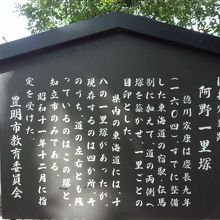 阿野一里塚
徳川家康は慶長九年
(一六〇四)すでに整備
した東海道の宿駅、伝馬
制に加えて、道の両側へ
一里塚を築き、一里ごとの
目印とした。
県内の東海道には、十
八の一里塚があったが、
現存するのは四か所、そ
のうち道の左右とも残
っているのはこの塚と、
知立市のみである。
昭和十一年十二月に指
定を受けた。
豊明市教育委員会